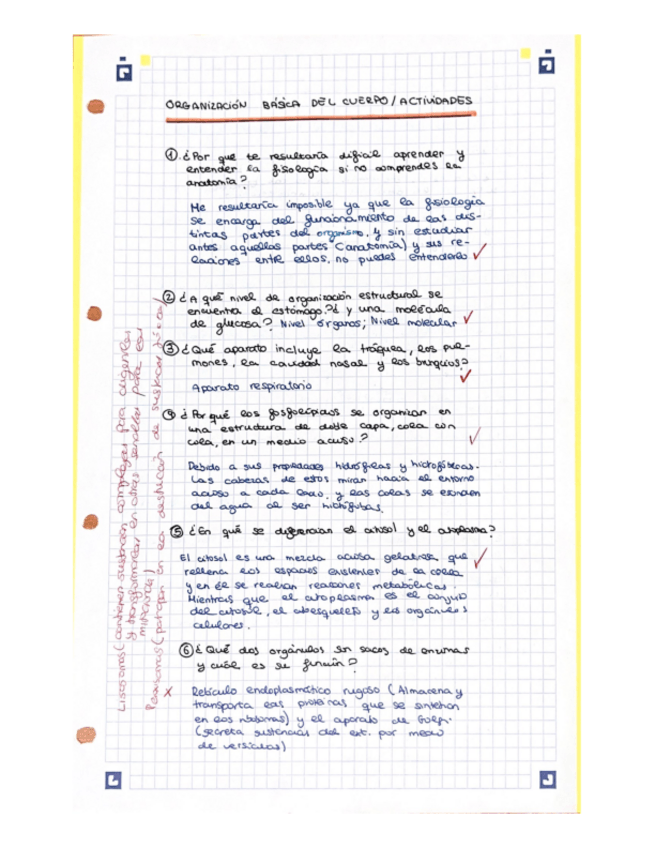 ORGANIZACIÓN BÁSICA DEL CUERPO / ACTIVIDADES
① ¿Por qué te resultaría difícil aprender y
entender la fisiología si no comprendes la
anatomía?
Me resultaría imposible ya que la fisiología
se encarga del funcionamiento de las dis-
tintas partes del organismo, y sin estudiar
antes aquellas partes (anatomía) y sus re-
laciones entre ellos, no puedes entenderlo
② ¿A qué nivel de organización estructural se
encuentra el estómago? ¿ y una molécula
de glucosa? Nivel órganos; Nivel molecular
③ ¿Qué aparato incluye la tráquea, los pul-
mones, la cavidad nasal y los bronquios?
Aparato respiratorio
④ ¿Por qué los fosfolípidos se organizan en
una estructura de doble capa, cola con
cola, en un medio acuoso?
Debido a sus propiedades hidrófilas y hidrofóbicas.
Las cabezas de estos miran hacia el entorno
acuoso a cada lado, y las colas se esconden
del agua al ser hidrófobas.
⑤ ¿En qué se diferencian el citosol y el citoplasma?
El citosol es una mezcla acuosa gelatinosa que
rellena los espacios existentes de la célula
y en él se realizan reacciones metabólicas.
Mientras que el citoplasma es el conjunto
del citosol, el citoesqueleto y los orgánulos
celulares.
⑥ ¿Qué dos orgánulos son sacos de enzimas
y cuál es su función?
Retículo endoplasmático rugoso (Almacena y
transporta las proteínas que se sintetizan
en los ribosomas) y el aparato de Golgi.
(secreta sustancias del ext. por medio
de vesículas)
Lisosomas (contienen sustancias complejas para digerirlas
y transformarlas en otras sencillas para
Peroxisomas (participan en la destrucción de sustancias tóxicas)